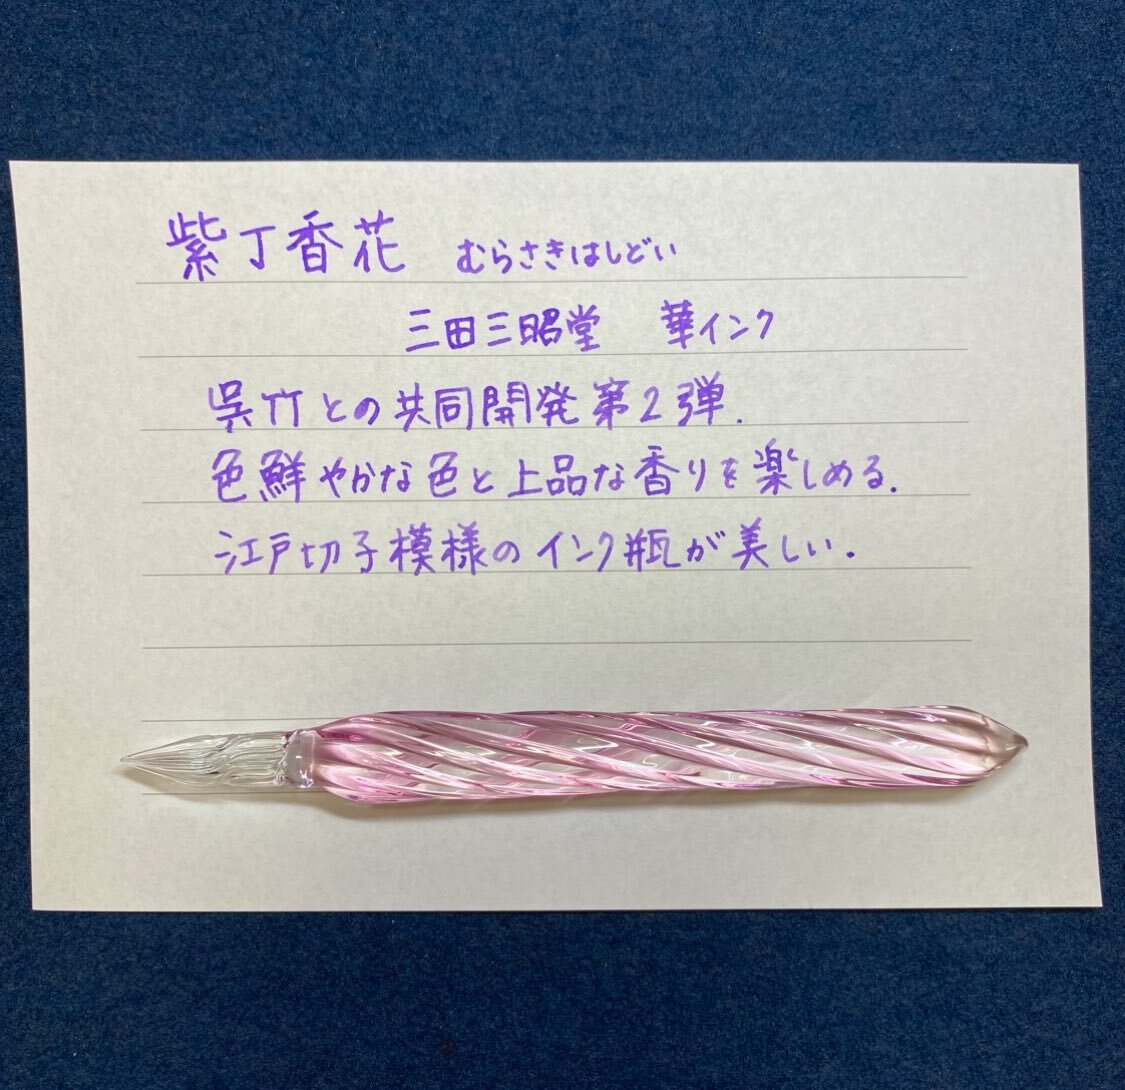 紫丁香花 むらさきはしどい
三田三昭堂 華インク
呉竹との共同開発第2弾.
色鮮やかな色と上品な香りを楽しめる.
江戸切子模様のインク瓶が美しい.